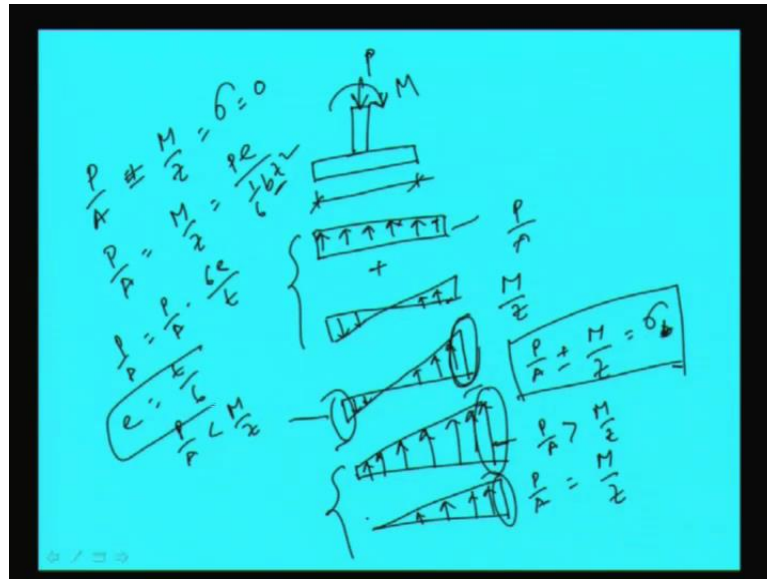 P
M
P/A ± M/z = σ = 0
P/A = M/z = Pe / 1/6 bt²
P/A = P/A · 6e/t
e = t/6
P/A < M/z
P/A
+
M/z
P/A ± M/z = σ
P/A > M/z
P/A = M/z